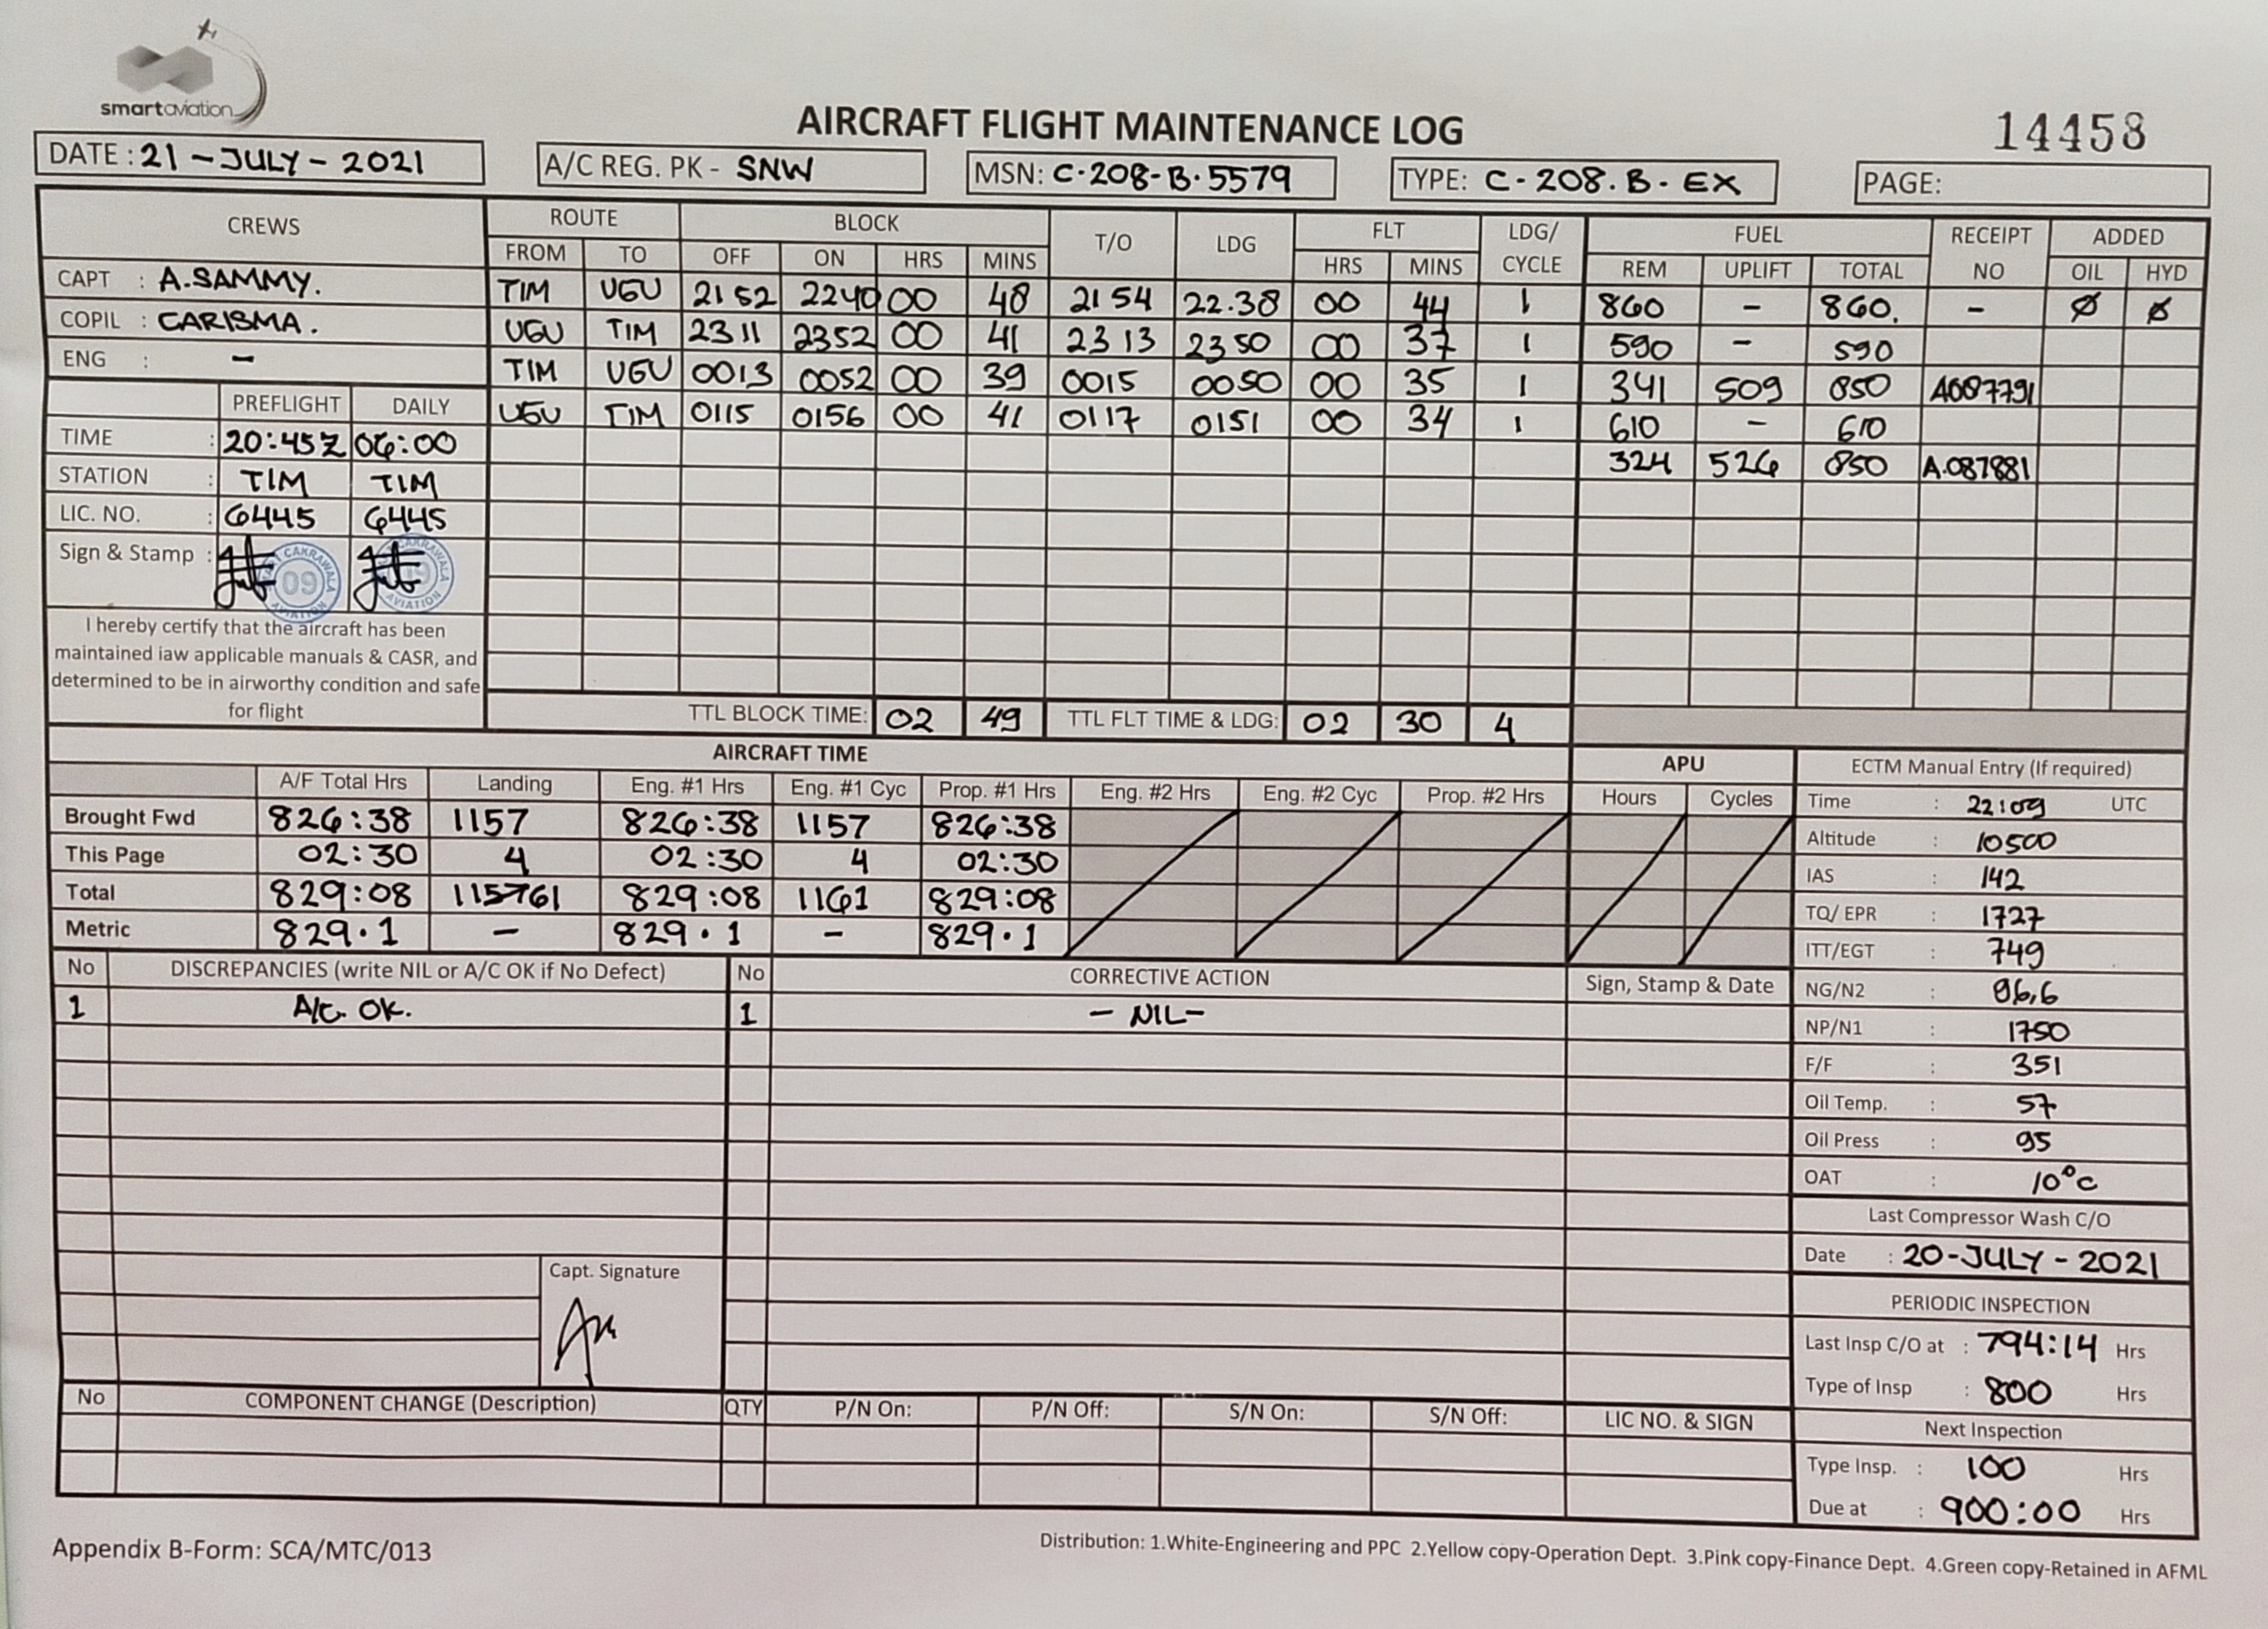 smartaviation
AIRCRAFT FLIGHT MAINTENANCE LOG
14458
DATE : 21 - JULY - 2021 A/C REG. PK - SNW MSN: C-208-B-5579 TYPE: C - 208. B - EX PAGE:
CREWS ROUTE BLOCK T/O LDG FLT LDG/ CYCLE FUEL RECEIPT NO ADDED
FROM TO OFF ON HRS MINS HRS MINS REM UPLIFT TOTAL OIL HYD
CAPT : A.SAMMY. TIM UGU 2152 2240 00 48 2154 22.38 00 44 1 860 - 860. - Ø Ø
COPIL : CARISMA. UGU TIM 2311 2352 00 41 2313 2350 00 37 1 590 - 590
ENG : - TIM UGU 0013 0052 00 39 0015 0050 00 35 1 341 509 850 A087791
PREFLIGHT DAILY UGU TIM 0115 0156 00 41 0117 0151 00 34 1 610 - 610
TIME : 20:45Z 06:00 324 526 850 A.087881
STATION : TIM TIM
LIC. NO. : 6445 6445
Sign & Stamp : CAKRAWALA 09 AVIATION CAKRAWALA 09 AVIATION
I hereby certify that the aircraft has been
maintained iaw applicable manuals & CASR, and
determined to be in airworthy condition and safe
for flight
TTL BLOCK TIME: 02 49 TTL FLT TIME & LDG: 02 30 4
AIRCRAFT TIME APU ECTM Manual Entry (If required)
A/F Total Hrs Landing Eng. #1 Hrs Eng. #1 Cyc Prop. #1 Hrs Eng. #2 Hrs Eng. #2 Cyc Prop. #2 Hrs Hours Cycles
Brought Fwd 826:38 1157 826:38 1157 826:38
This Page 02:30 4 02:30 4 02:30
Total 829:08 115761 829:08 1161 829:08
Metric 829.1 - 829.1 - 829.1
Time : 22:09 UTC
Altitude : 10500
IAS : 142
TQ/ EPR : 1727
ITT/EGT : 749
NG/N2 : 96,6
NP/N1 : 1750
F/F : 351
Oil Temp. : 57
Oil Press : 95
OAT : 10°C
Last Compressor Wash C/O
Date : 20-JULY - 2021
PERIODIC INSPECTION
Last Insp C/O at : 794:14 Hrs
Type of Insp : 800 Hrs
Next Inspection
Type Insp. : 100 Hrs
Due at : 900:00 Hrs
No DISCREPANCIES (write NIL or A/C OK if No Defect) No CORRECTIVE ACTION Sign, Stamp & Date
1 A/C. OK. 1 - NIL-
Capt. Signature
No COMPONENT CHANGE (Description) QTY P/N On: P/N Off: S/N On: S/N Off: LIC NO. & SIGN
Appendix B-Form: SCA/MTC/013
Distribution: 1.White-Engineering and PPC 2.Yellow copy-Operation Dept. 3.Pink copy-Finance Dept. 4.Green copy-Retained in AFML